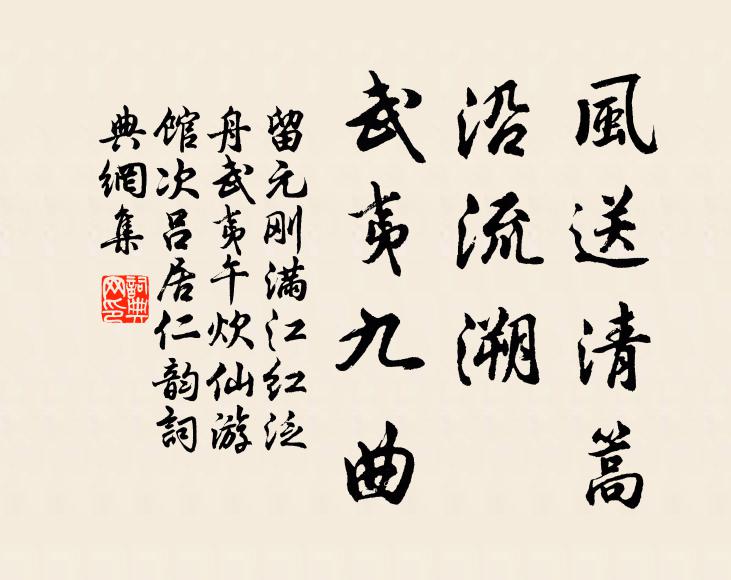 風送清篙
沿流溯
武夷九曲
留元刚滿江红泛
舟武夷午炊仙游
馆次吕居仁韵詞
典網集
詞典網印